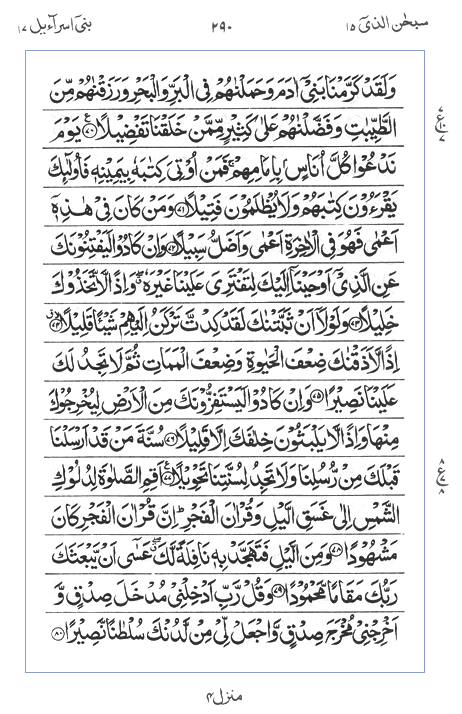 سبحٰن الذیٓ ۱۵
۲۹۰
بنیٓ اسرآءیل ۱۷
وَلَقَدْ كَرَّمْنَا بَنِيْٓ اٰدَمَ وَحَمَلْنٰهُمْ فِي الْبَرِّ وَالْبَحْرِ وَرَزَقْنٰهُمْ مِّنَ
الطَّيِّبٰتِ وَفَضَّلْنٰهُمْ عَلٰى كَثِيْرٍ مِّمَّنْ خَلَقْنَا تَفْضِيْلًا ۝۷۰ يَوْمَ
نَدْعُوْا كُلَّ اُنَاسٍۭ بِاِمَامِهِمْ ۚ فَمَنْ اُوْتِيَ كِتٰبَهٗ بِيَمِيْنِهٖ فَاُولٰٓئِكَ
يَقْرَءُوْنَ كِتٰبَهُمْ وَلَا يُظْلَمُوْنَ فَتِيْلًا ۝۷۱ وَمَنْ كَانَ فِيْ هٰذِهٖٓ
اَعْمٰى فَهُوَ فِي الْاٰخِرَةِ اَعْمٰى وَاَضَلُّ سَبِيْلًا ۝۷۲ وَاِنْ كَادُوْا لَيَفْتِنُوْنَكَ
عَنِ الَّذِيْٓ اَوْحَيْنَآ اِلَيْكَ لِتَفْتَرِيَ عَلَيْنَا غَيْرَهٗ ۖ وَاِذًا لَّاتَّخَذُوْكَ
خَلِيْلًا ۝۷۳ وَلَوْلَآ اَنْ ثَبَّتْنٰكَ لَقَدْ كِدْتَّ تَرْكَنُ اِلَيْهِمْ شَيْـًٔا قَلِيْلًا ۝۷۴
اِذًا لَّاَذَقْنٰكَ ضِعْفَ الْحَيٰوةِ وَضِعْفَ الْمَمَاتِ ثُمَّ لَا تَجِدُ لَكَ
عَلَيْنَا نَصِيْرًا ۝۷۵ وَاِنْ كَادُوْا لَيَسْتَفِزُّوْنَكَ مِنَ الْاَرْضِ لِيُخْرِجُوْكَ
مِنْهَا وَاِذًا لَّا يَلْبَثُوْنَ خِلٰفَكَ اِلَّا قَلِيْلًا ۝۷۶ سُنَّةَ مَنْ قَدْ اَرْسَلْنَا
قَبْلَكَ مِنْ رُّسُلِنَا وَلَا تَجِدُ لِسُنَّتِنَا تَحْوِيْلًا ۝۷۷ اَقِمِ الصَّلٰوةَ لِدُلُوْكِ
الشَّمْسِ اِلٰى غَسَقِ الَّيْلِ وَقُرْاٰنَ الْفَجْرِ ۭ اِنَّ قُرْاٰنَ الْفَجْرِ كَانَ
مَشْهُوْدًا ۝۷۸ وَمِنَ الَّيْلِ فَتَهَجَّدْ بِهٖ نَافِلَةً لَّكَ ۖ عَسٰٓى اَنْ يَّبْعَثَكَ
رَبُّكَ مَقَامًا مَّحْمُوْدًا ۝۷۹ وَقُلْ رَّبِّ اَدْخِلْنِيْ مُدْخَلَ صِدْقٍ وَّ
اَخْرِجْنِيْ مُخْرَجَ صِدْقٍ وَّاجْعَلْ لِّيْ مِنْ لَّدُنْكَ سُلْطٰنًا نَّصِيْرًا ۝۸۰
منزل ۴